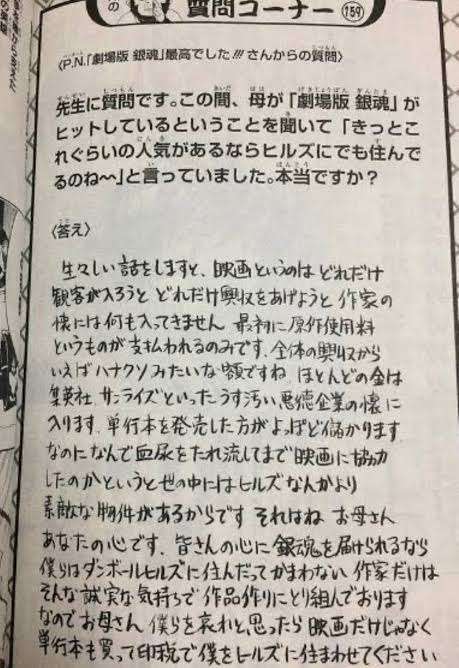 の
質問コーナー 159
〈P.N.「劇場版 銀魂」最高でした!!! さんからの質問〉
先生に質問です。この間、母が「劇場版 銀魂」が
ヒットしているということを聞いて「きっとこ
れぐらいの人気があるならヒルズにでも住んで
るのね〜」と言っていました。本当ですか？
〈答え〉
生々しい話をしますと、映画というのは どれだけ
観客が入ろうと どれだけ興収をあげようと 作家の
懐には何も入ってきません 最初に原作使用料
というものが支払われるのみです、全体の興収から
いえばハナクソみたいな額ですね ほとんどの金は
集英社 サンライズといったうす汚い悪徳企業の懐に
入ります、単行本を発売した方がよっぽど儲かります
なのになんで血尿をたれ流してまで映画に協力
したのかというと世の中にはヒルズなんかより
素敵な物件があるからです それはね お母さん
あなたの心です、皆さんの心に銀魂を届けられるなら
僕らはダンボールヒルズに住んだってかまわない 作家だけは
そんな誠実な気持ちで作品作りにとり組んでおります
なのでお母さん 僕らを哀れと思ったら映画だけじゃなく
単行本も買って印税で僕をヒルズに住まわせてください